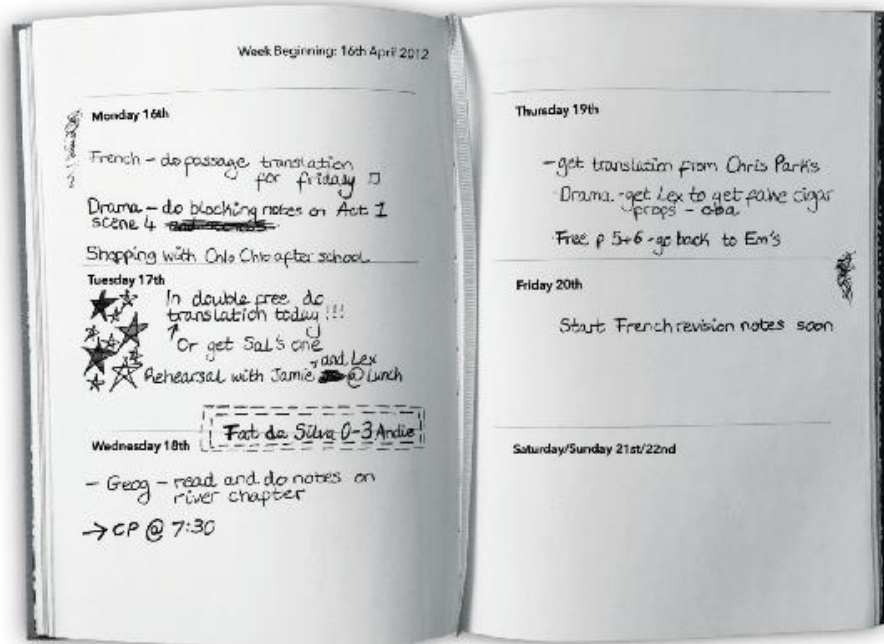 Week Beginning: 16th April 2012
Monday 16th
French - do passage translation
for friday
Drama - do blocking notes on Act 1
scene 4
Shopping with Chlo Chlo after school
Tuesday 17th
In double free do
translation today !!!
Or get Sal's one
and Lex
Rehearsal with Jamie @ Lunch
Fat da Silva 0-3 Andie
Wednesday 18th
- Geog - read and do notes on
river chapter
→ CP @ 7:30
Thursday 19th
- get translation from Chris Parks
Drama - get Lex to get fake cigar
props - cba
Free p 5+6 - go back to Em's
Friday 20th
Start French revision notes soon
Saturday/Sunday 21st/22nd